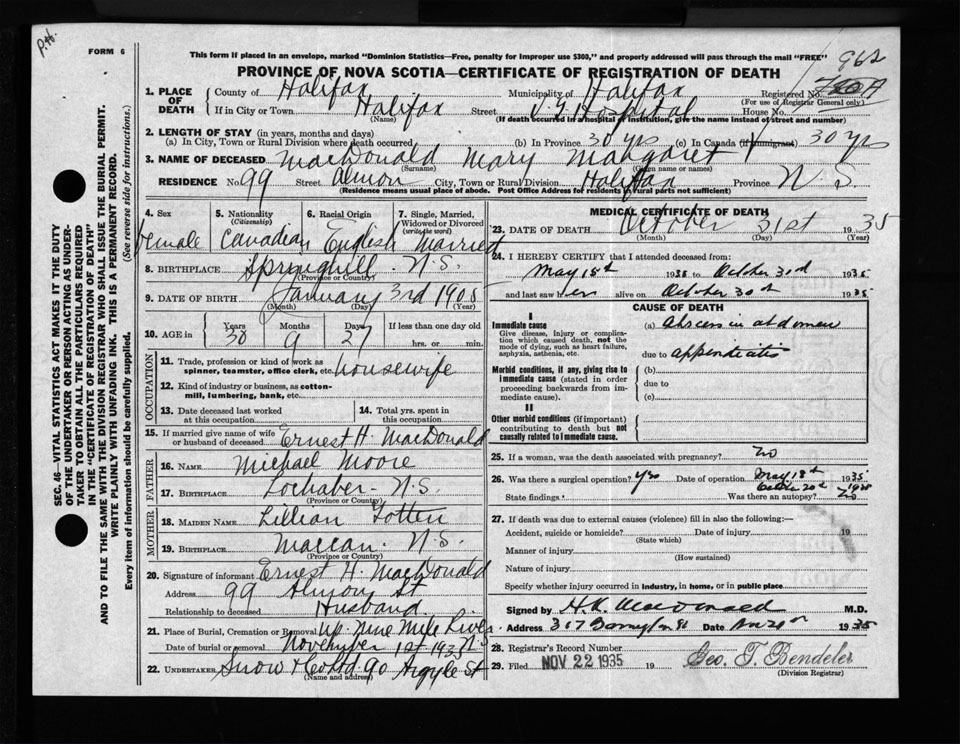 P.H.
FORM 6
This form if placed in an envelope, marked "Dominion Statistics—Free, penalty for improper use $300," and properly addressed will pass through the mail "FREE"
962
PROVINCE OF NOVA SCOTIA—CERTIFICATE OF REGISTRATION OF DEATH
1. PLACE OF DEATH
County of Halifax Municipality of Halifax Registered No.
(For use of Registrar General only.)
If in City or Town Halifax Street V G Hospital House No.
(Name) (If death occurred in a hospital or institution, give the name instead of street and number)
2. LENGTH OF STAY (in years, months and days)
(a) In City, Town or Rural Division where death occurred (b) In Province 30 yrs (c) In Canada (if immigrant) 30 yrs
3. NAME OF DECEASED MacDonald Mary Margaret
(Surname) (Given name or names)
RESIDENCE No 99 Street Almon City, Town or Rural Division Halifax Province N.S.
(Residence means usual place of abode. Post Office Address for residents in rural parts not sufficient)
4. Sex Female
5. Nationality (Citizenship) Canadian
6. Racial Origin English
7. Single, Married, Widowed or Divorced (write the word) Married
8. BIRTHPLACE Springhill N.S.
(Province or Country)
9. DATE OF BIRTH January 3rd 1905
(Month) (Day) (Year)
10. AGE in Years 30 Months 9 Days 27 If less than one day old
hrs. or min.
OCCUPATION
11. Trade, profession or kind of work as spinner, teamster, office clerk, etc. housewife
12. Kind of industry or business, as cotton-mill, lumbering, bank, etc.
13. Date deceased last worked at this occupation
14. Total yrs. spent in this occupation
15. If married give name of wife or husband of deceased Ernest H. MacDonald
FATHER
16. NAME Michael Moore
17. BIRTHPLACE Lochaber N.S.
(Province or Country)
MOTHER
18. MAIDEN NAME Lillian Totten
19. BIRTHPLACE Maccan N.S.
(Province or Country)
20. Signature of informant Ernest H. MacDonald
Address 99 Almon St
Relationship to deceased Husband
21. Place of Burial, Cremation or Removal Up. Nine Mile River
Date of burial or removal November 1st 1935 N.S.
22. UNDERTAKER Snow & Co Ltd 90 Argyle St
(Name and address)
MEDICAL CERTIFICATE OF DEATH
23. DATE OF DEATH October 31st 1935
(Month) (Day) (Year)
24. I HEREBY CERTIFY that I attended deceased from:
May 18th 1935 to October 31st 1935
and last saw her alive on October 30th 1935
CAUSE OF DEATH
I
Immediate cause
Give disease, injury or complication which caused death, not the mode of dying, such as heart failure, asphyxia, asthenia, etc.
(a) Abscess in abdomen
due to appendicitis
Morbid conditions, if any, giving rise to immediate cause (stated in order proceeding backwards from immediate cause).
(b)
due to
(c)
II
Other morbid conditions (if important) contributing to death but not causally related to immediate cause.
25. If a woman, was the death associated with pregnancy? No
26. Was there a surgical operation? Yes Date of operation May 18th 1935
October 20th 1935
State findings Was there an autopsy? No
27. If death was due to external causes (violence) fill in also the following:—
Accident, suicide or homicide? Date of injury 19
(State which)
Manner of injury
(How sustained)
Nature of injury
Specify whether injury occurred in industry, in home, or in public place
Signed by H.K. MacDonald M.D.
Address 317 Barrington St Date 1935
28. Registrar's Record Number
29. Filed NOV 22 1935 19 Geo. T. Bendeler
(Division Registrar)
SEC. 46—VITAL STATISTICS ACT MAKES IT THE DUTY
OF THE UNDERTAKER OR PERSON ACTING AS UNDER-
TAKER TO OBTAIN ALL THE PARTICULARS REQUIRED
IN THE "CERTIFICATE OF REGISTRATION OF DEATH"
AND TO FILE THE SAME WITH THE DIVISION REGISTRAR WHO SHALL ISSUE THE BURIAL PERMIT.
WRITE PLAINLY WITH UNFADING INK. THIS IS A PERMANENT RECORD.
Every item of information should be carefully supplied. (See reverse side for instructions.)